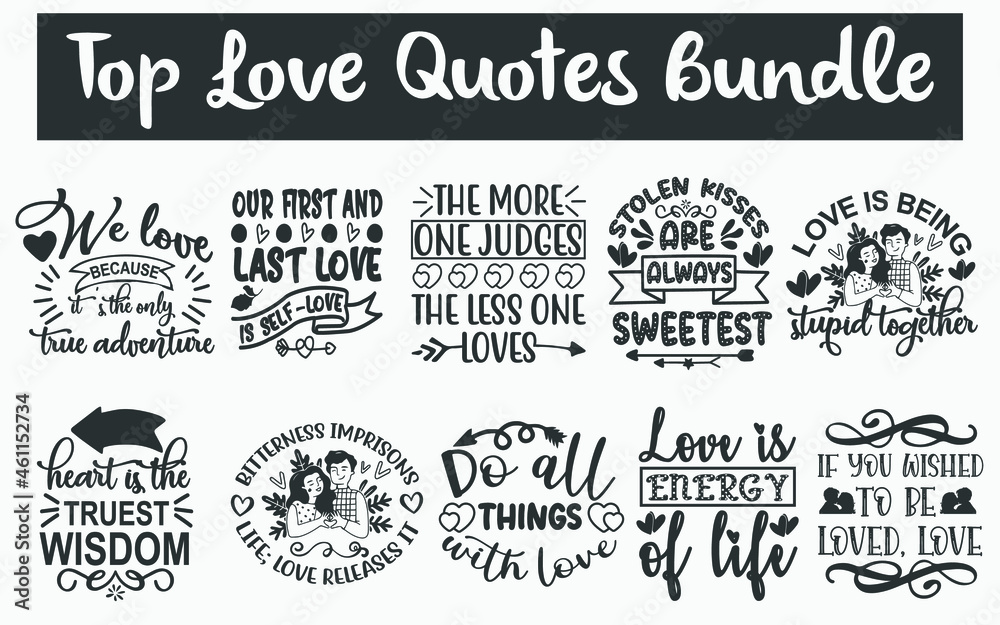 Top Love Quotes Bundle
We love
BECAUSE
it 's the only
true adventure
OUR FIRST AND
LAST LOVE
IS SELF-LOVE
THE MORE
ONE JUDGES
THE LESS ONE
LOVES
STOLEN KISSES
ARE
ALWAYS
SWEETEST
LOVE IS BEING
stupid together
heart is the
TRUEST
WISDOM
BITTERNESS IMPRISONS
LIFE; LOVE RELEASES IT
Do all
THINGS
with love
Love is
ENERGY
of life
IF YOU WISHED
TO BE
LOVED, LOVE
Adobe Stock | #461152734